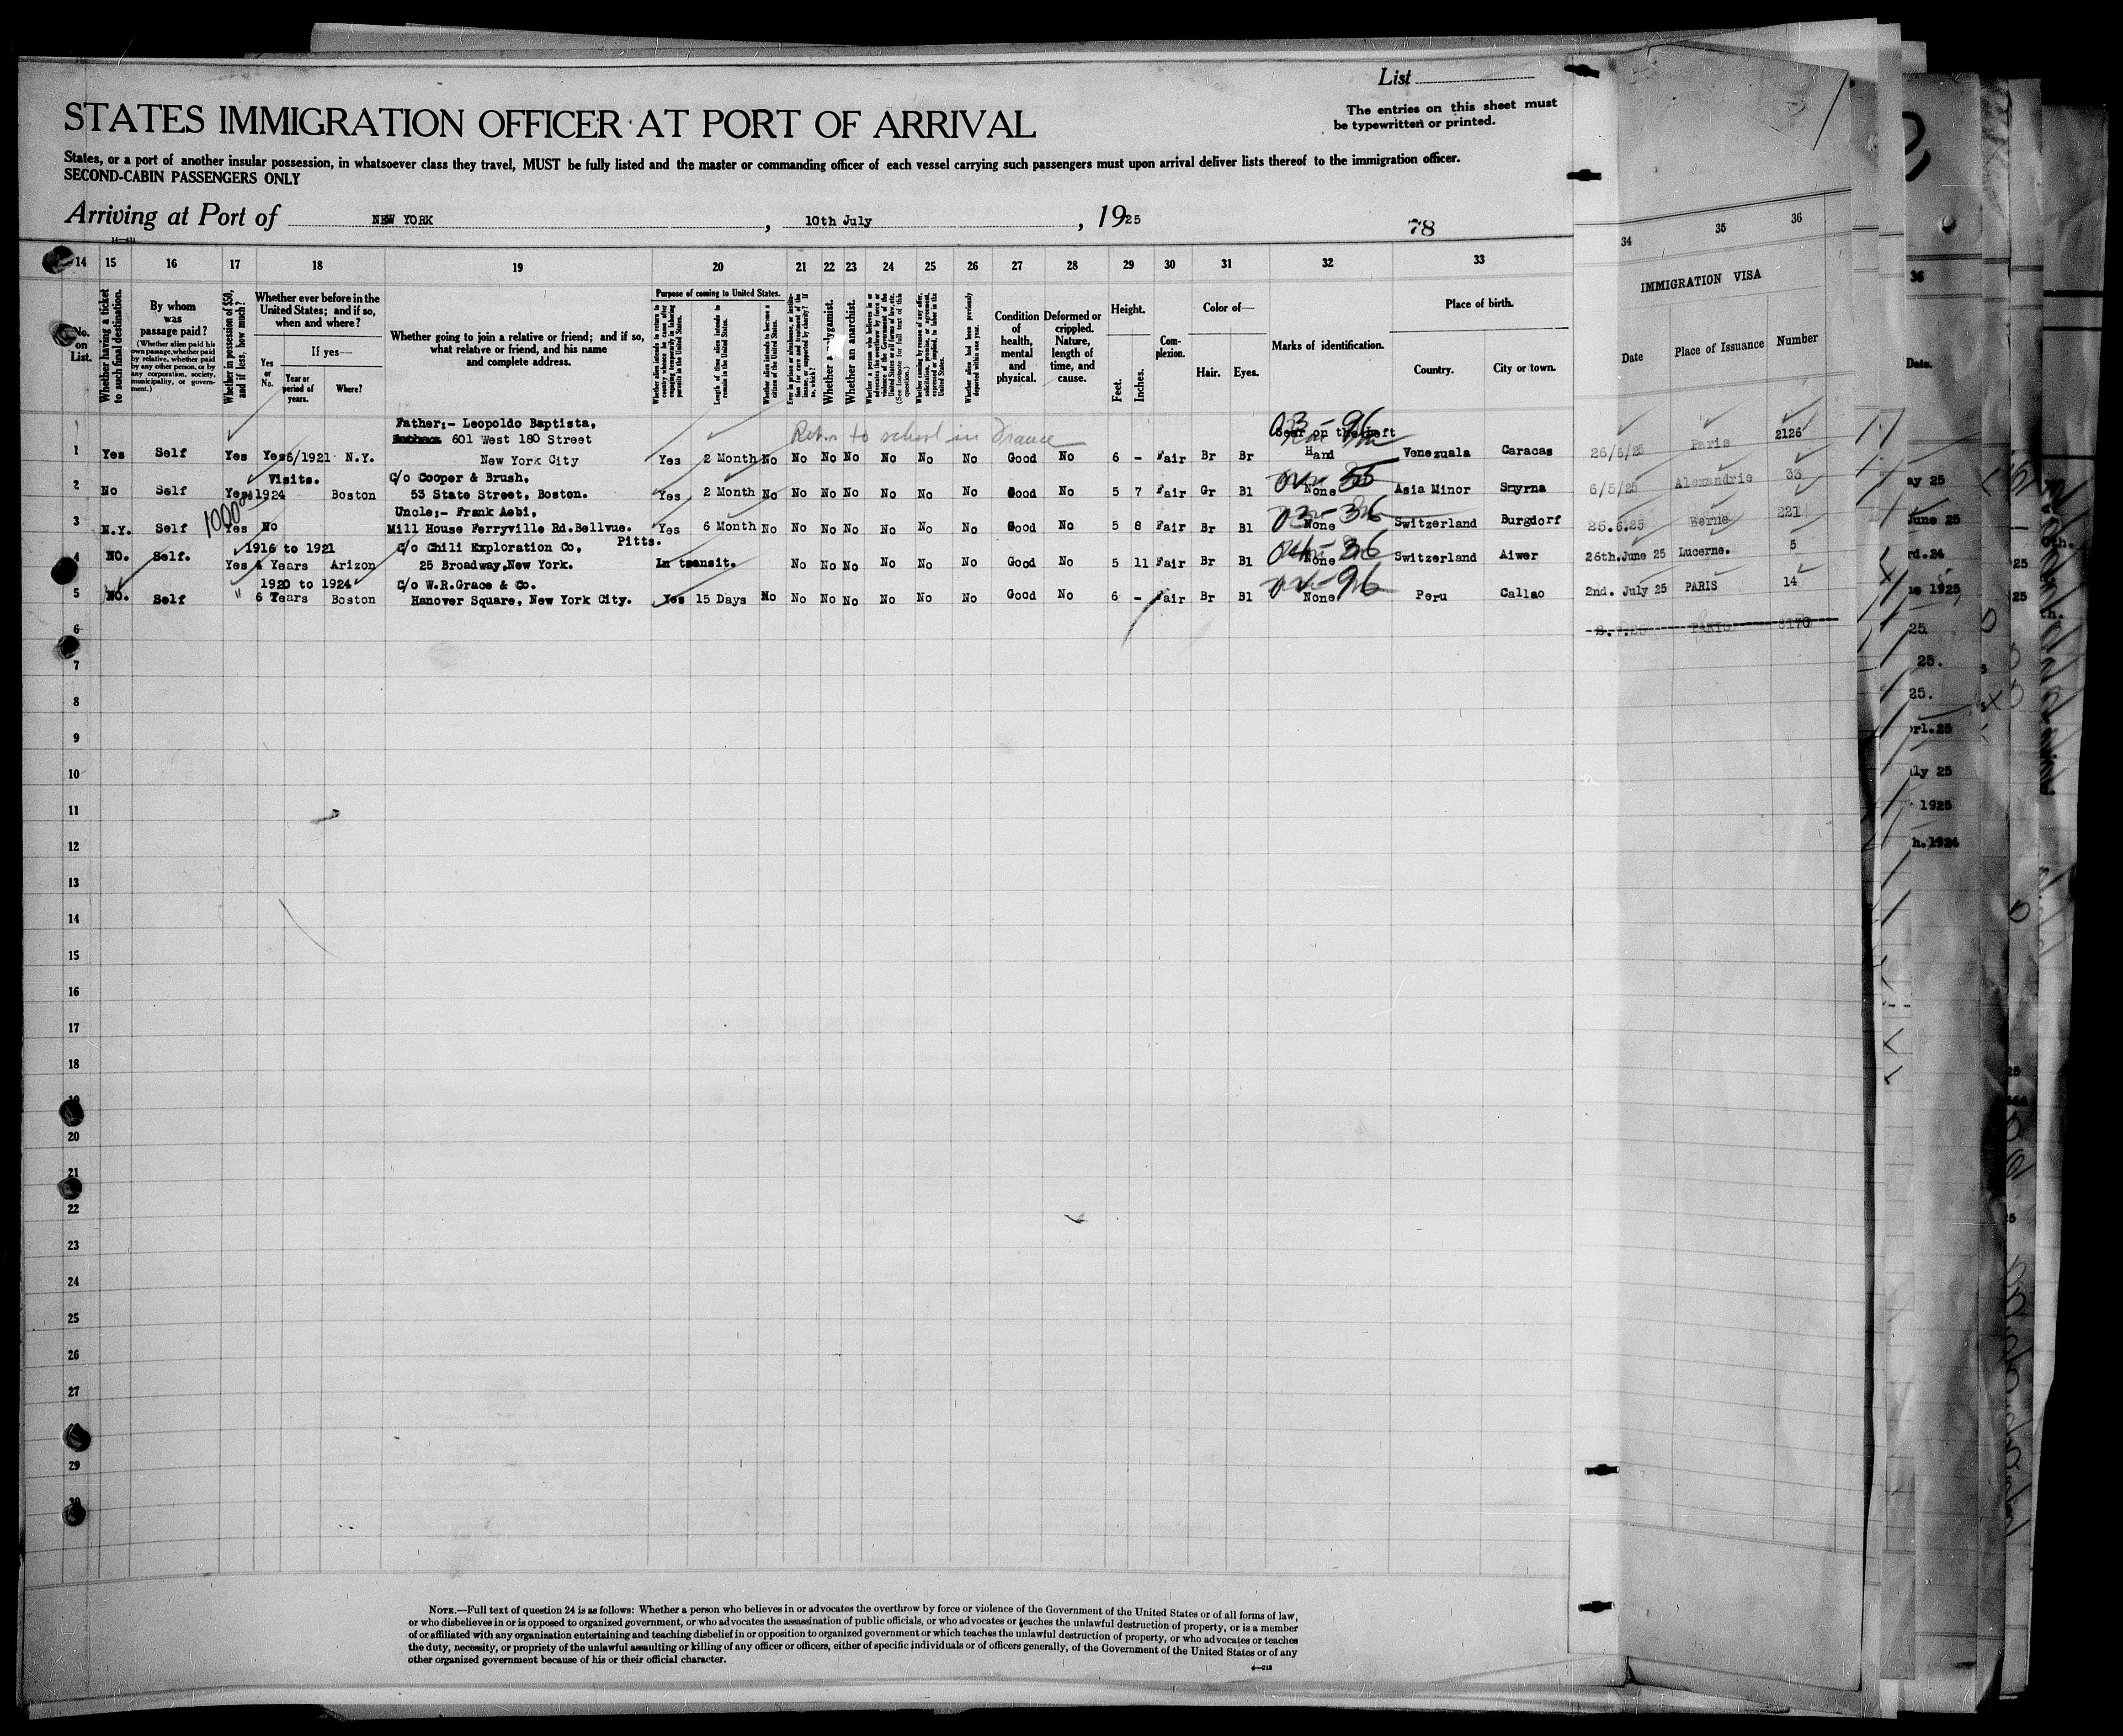 List
The entries on this sheet must
be typewritten or printed.
STATES IMMIGRATION OFFICER AT PORT OF ARRIVAL
States, or a port of another insular possession, in whatsoever class they travel, MUST be fully listed and the master or commanding officer of each vessel carrying such passengers must upon arrival deliver lists thereof to the immigration officer.
SECOND-CABIN PASSENGERS ONLY
Arriving at Port of NEW YORK , 10th July , 1925
78
14 15 16 17 18 19 20 21 22 23 24 25 26 27 28 29 30 31 32 33 34 35 36
No. on List.
Whether having a ticket to such final destination.
By whom was passage paid?
(Whether alien paid his own passage, whether paid by relative, whether paid by any other person, or by any corporation, society, municipality, or government.)
Whether in possession of $50, and if less, how much?
Whether ever before in the United States; and if so, when and where?
Yes or No.
If yes—
Year or period of years.
Where?
Whether going to join a relative or friend; and if so, what relative or friend, and his name and complete address.
Purpose of coming to United States.
Length of time alien intends to remain in the United States.
Whether alien intends to become a citizen of the United States.
Whether a polygamist.
Whether an anarchist.
Condition of health, mental and physical.
Deformed or crippled. Nature, length of time, and cause.
Height.
Feet.
Inches.
Complexion.
Color of—
Hair. Eyes.
Marks of identification.
Place of birth.
Country. City or town.
IMMIGRATION VISA
Date Place of Issuance Number
Father:- Leopoldo Baptista,
601 West 180 Street
to school in France
03-96
Scar on the Left
1 Yes Self Yes Yes 6/1921 N.Y. New York City Yes 2 Month No No No No No No No Good No 6 - Fair Br Br Hand Venezuala Caracas 26/6/25 Paris 2126
Visits. C/o Cooper & Brush,
2 No Self Yes 1924 Boston 53 State Street, Boston. Yes 2 Month No No No No No No No Good No 5 7 Fair Gr Bl None Asia Minor Smyrna 6/5/25 Alexandrie 33
1000
Uncle;- Frank Aebi,
3 N.Y. Self Yes No Mill House Ferryville Rd. Bellvue. Pitts. Yes 6 Month No No No No No No No Good No 5 8 Fair Br Bl None 03-36 Switzerland Burgdorf 25.6.25 Berne 221
1916 to 1921 C/o Chili Exploration Co,
4 NO. Self. Yes 4 Years Arizon 25 Broadway,New York. In transit. No No No No No No Good No 5 11 Fair Br Bl None 04-36 Switzerland Aiwer 26th.June 25 Lucerne. 5
1920 to 1924 C/o W.R.Grace & Co.
5 NO. Self " 6 Years Boston Hanover Square, New York City. Yes 15 Days No No No No No No No Good No 6 - Fair Br Bl None Peru Callao 2nd. July 25 PARIS 14
6 PARIS
7
8
9
10
11
12
13
14
15
16
17
18
19
20
21
22
23
24
25
26
27
29
30
NOTE.—Full text of question 24 is as follows: Whether a person who believes in or advocates the overthrow by force or violence of the Government of the United States or of all forms of law,
or who disbelieves in or is opposed to organized government, or who advocates the assassination of public officials, or who advocates or teaches the unlawful destruction of property, or is a member
of or affiliated with any organization entertaining and teaching disbelief in or opposition to organized government or which teaches the unlawful destruction of property, or who advocates or teaches
the duty, necessity, or propriety of the unlawful assaulting or killing of any officer or officers, either of specific individuals or of officers generally, of the Government of the United States or of any
other organized government because of his or their official character.
36
Date.
ay 25
June 25
rd.24
1925
25
25.
25.
rl.25
ly 25
1925
h.1924